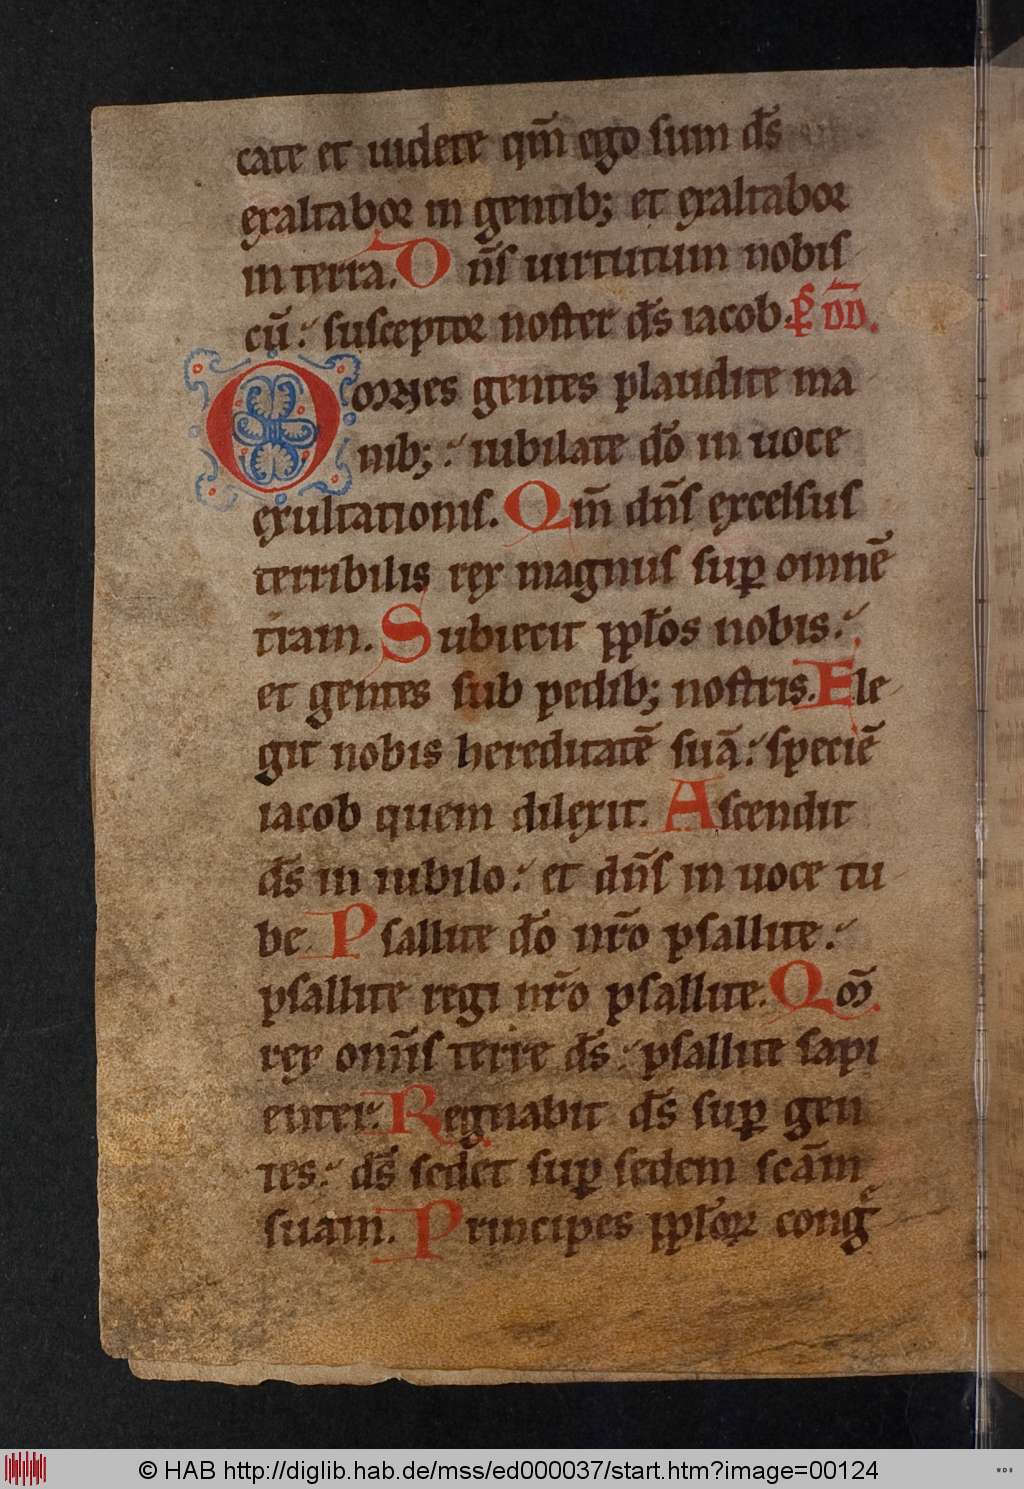 cate et uidete qm̄ ego sum ds̄
exaltabor in gentib; et exaltabor
in terra. D n̄s uirtutum nobis
cū: susceptor noster ds̄ iacob. Ps̄ DD̄.
OOmnes gentes plaudite ma
nib;: iubilate dō in uoce
exultationis. Qm̄ dn̄s excelsus
terribilis rex magnus sup omnē
tram. Subiecit ppłos nobis:
et gentes sub pedib; nostris. Ele
git nobis hereditatē suā: speciē
iacob quem dilexit. Ascendit
ds̄ in iubilo: et dn̄s in uoce tu
be. Psallite dō nr̄o psallite:
psallite regi nr̄o psallite. Qm̄
rex omīs terre ds̄: psallite sapi
enter. Regnabit ds̄ sup gen
tes: ds̄ sedet sup sedem scām
suam. Principes ppłoꝝ cong
© HAB http://diglib.hab.de/mss/ed000037/start.htm?image=00124